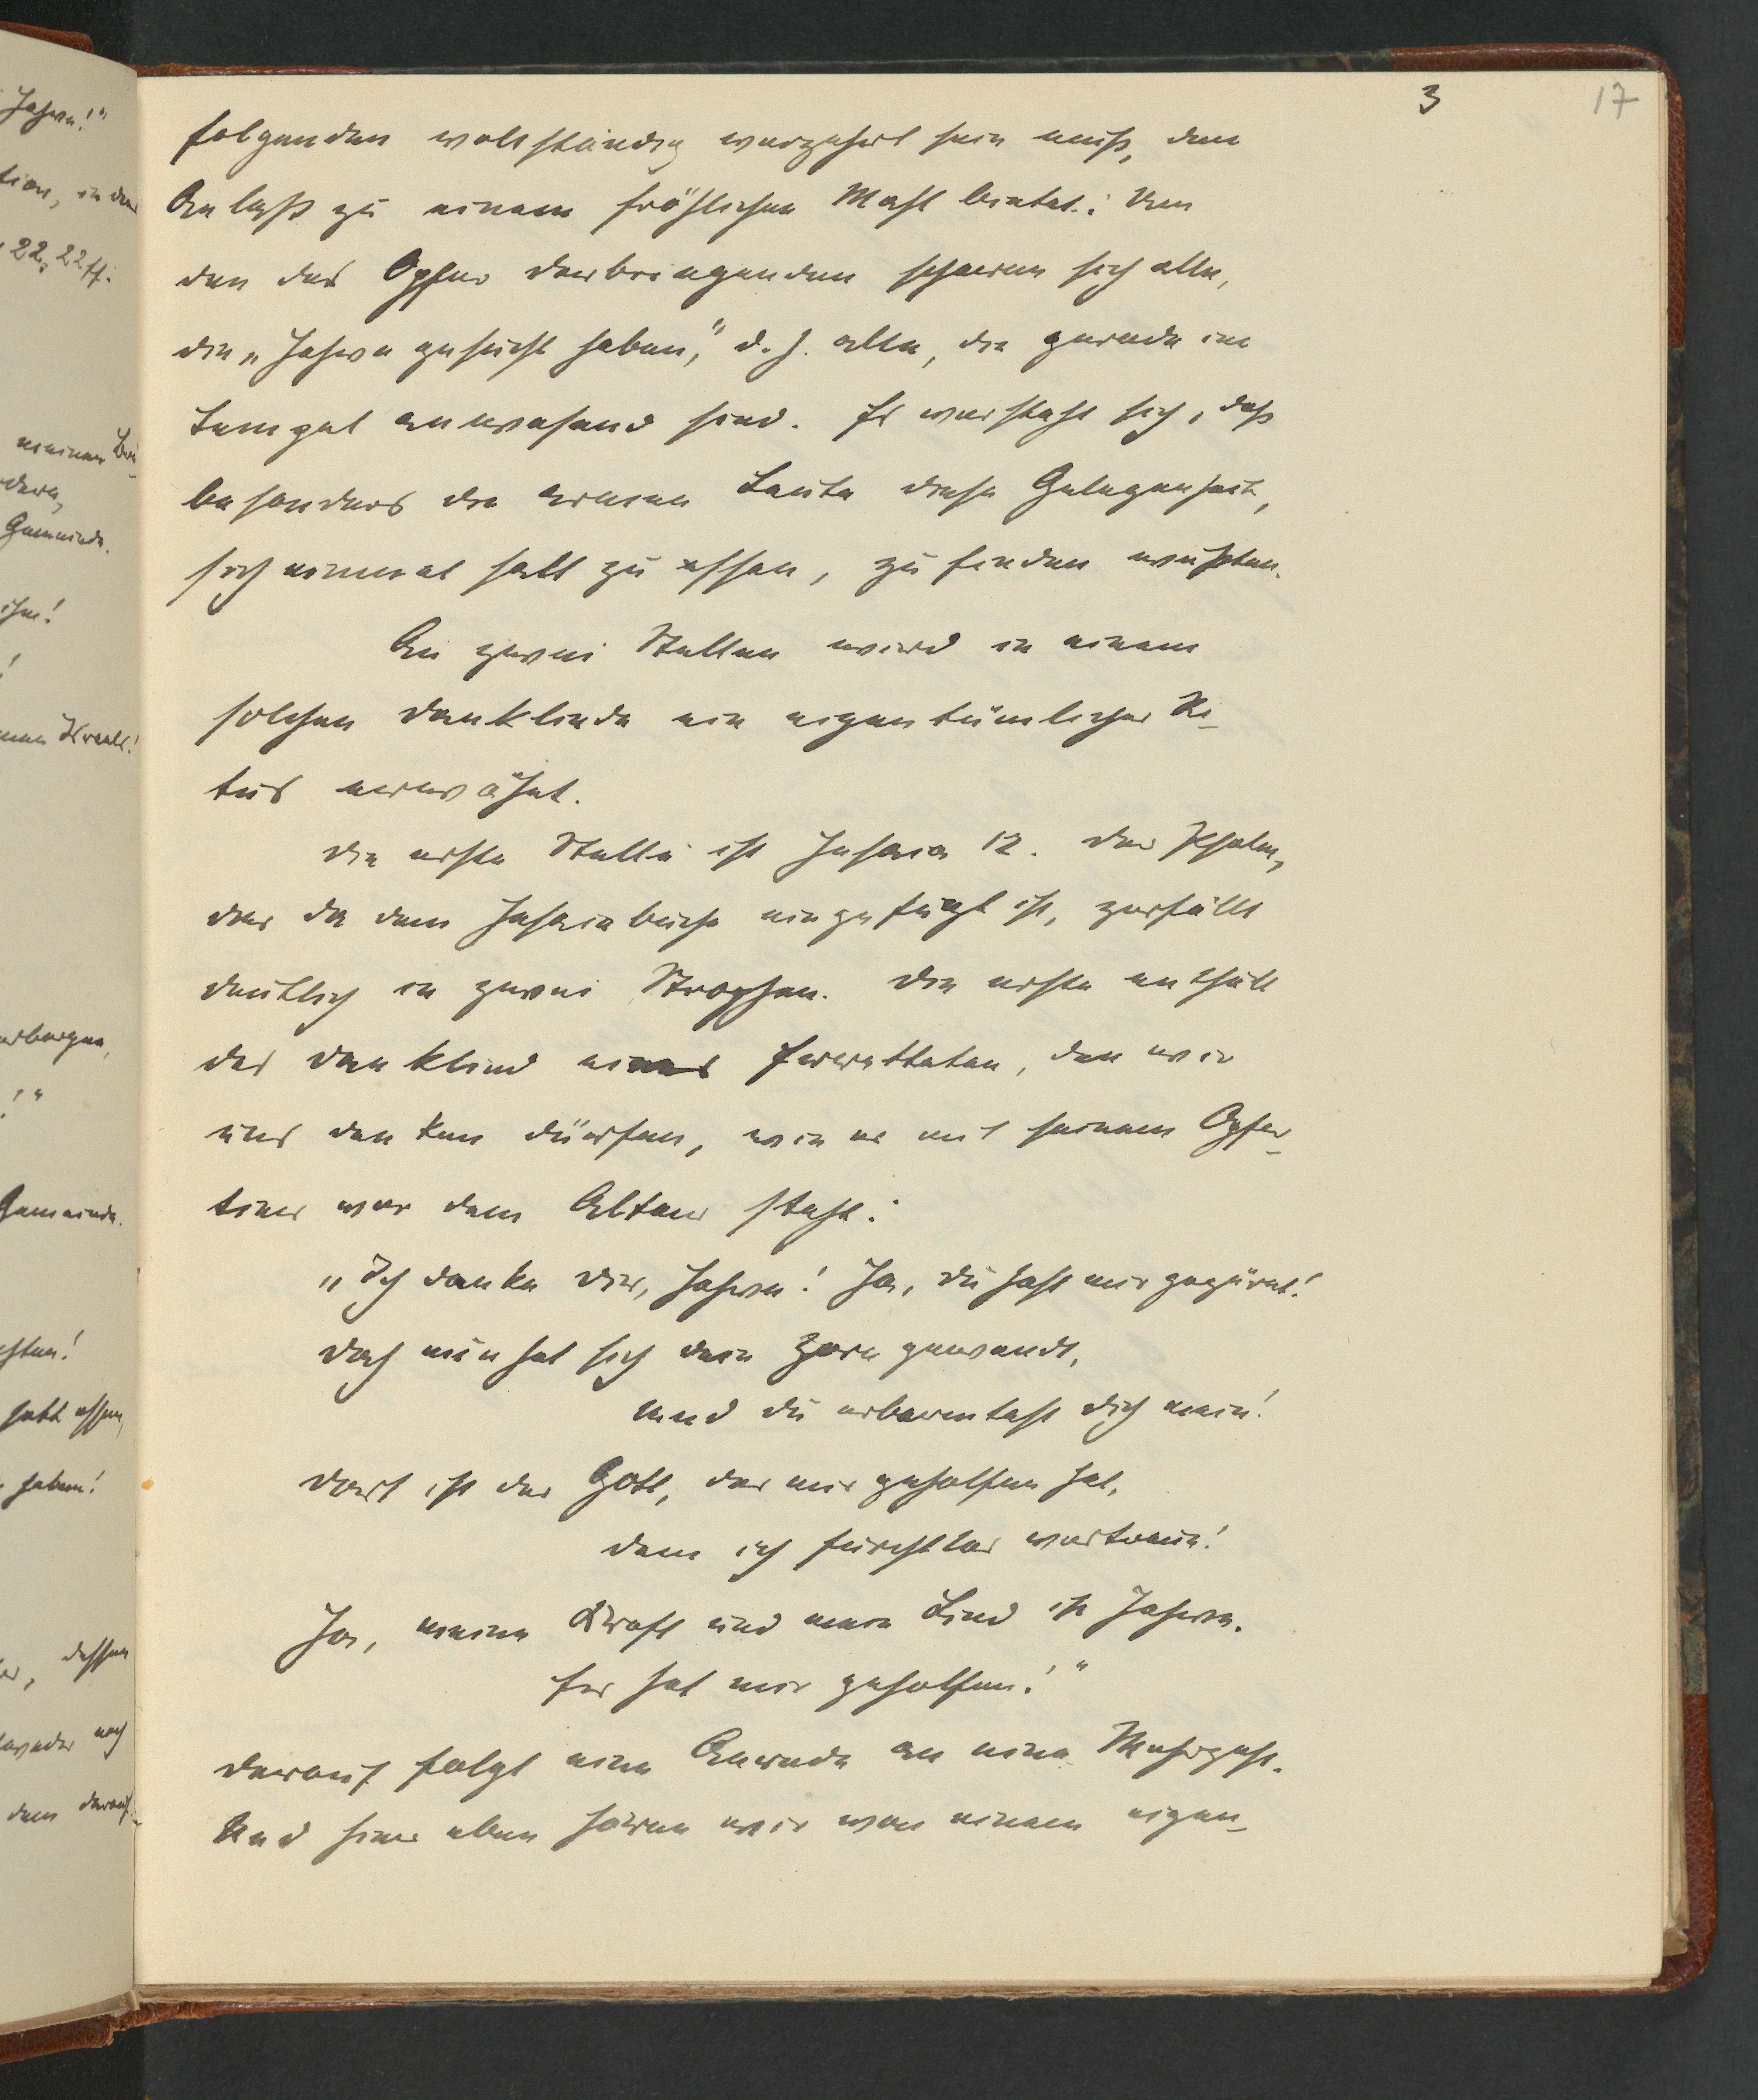 3
17
folgenden vollständig verzehrt sein muß, den
Anlaß zu einem fröhlichen Mahl bietet: Um
den das Opfer darbringenden scharen sich alle,
die „Jahve gesucht haben," d. h. alle, die gerade im
Tempel anwesend sind. Es versteht sich, daß
besonders die armen Leute diese Gelegenheit,
sich einmal satt zu essen, zu finden wußten.
An zwei Stellen wird in einem
solchen Dankliede ein eigentümlicher Ri-
tus erwähnt.
Die erste Stelle ist Jesaia 12. Der Psalm,
der da dem Jesaiabuche eingefügt ist, zerfällt
deutlich in zwei Strophen. Die erste enthält
das Danklied eines Erretteten, den wir
uns denken dürfen, wie er mit seinem Opfer-
tier vor dem Altar steht:
„Ich danke dir, Jahve! Ja, du hast mir gezürnt!
Doch nun hat sich dein Zorn gewandt,
Und du erbarmtest dich mein!
Dort ist der Gott, der mir geholfen hat,
dem ich furchtlos vertraue!
Ja, meine Kraft und mein Lied ist Jahve.
Er hat mir geholfen!"
Darauf folgt eine Anrede an eine Mehrzahl.
Und hier eben hören wir von einem eigen-
Jahve!"
tion, in der
22, 22 ff.
meinen Brü-
dern,
Gemeinde.
ihm!
!
Israels!
verborgen,
!"
Gemeinde.
satt essen,
haben!
dessen
weder noch
dem darauf-